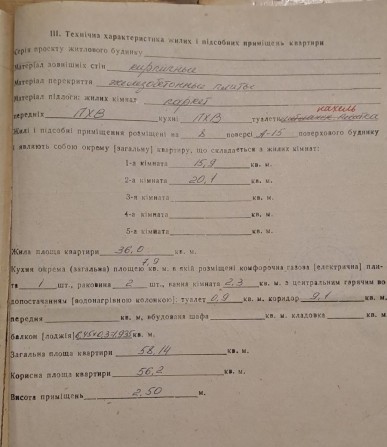 III. Технічна характеристика жилих і підсобних приміщень квартири
Серія проекту житлового будинку
Матеріал зовнішніх стін кирпичные
Матеріал перекриття железобетонные плиты
Матеріал підлоги: жилих кімнат паркет
передніх ПХВ кухні ПХВ туалет кахель
Жилі і підсобні приміщення розміщені на 8 поверсі А-15 поверхового будинку
і являють собою окрему [загальну] квартиру, що складається з жилих кімнат:
1-а кімната 15,9 кв. м.
2-а кімната 20,1 кв. м.
3-я кімната кв. м.
4-а кімната кв. м.
5-а кімната кв. м.
Жила площа квартири 36,0 кв. м.
7,9
Кухня окрема (загальна) площею кв. м. в якій розміщені комфорочна газова [електрична] пли-
та 1 шт., раковина 2 шт., ванна кімната 2,3 кв. м. з центральним гарячим во-
допостачанням [водонагрівною колонкою]; туалет 0,9 кв. м. коридор 9,1 кв. м.
передня кв. м. вбудована шафа кв. м. кладовка кв. м.
балкон [лоджія] кв. м.
Загальна площа квартири 58,14 кв. м.
Корисна площа квартири 56,2 кв. м.
Висота приміщень 2,50 м.